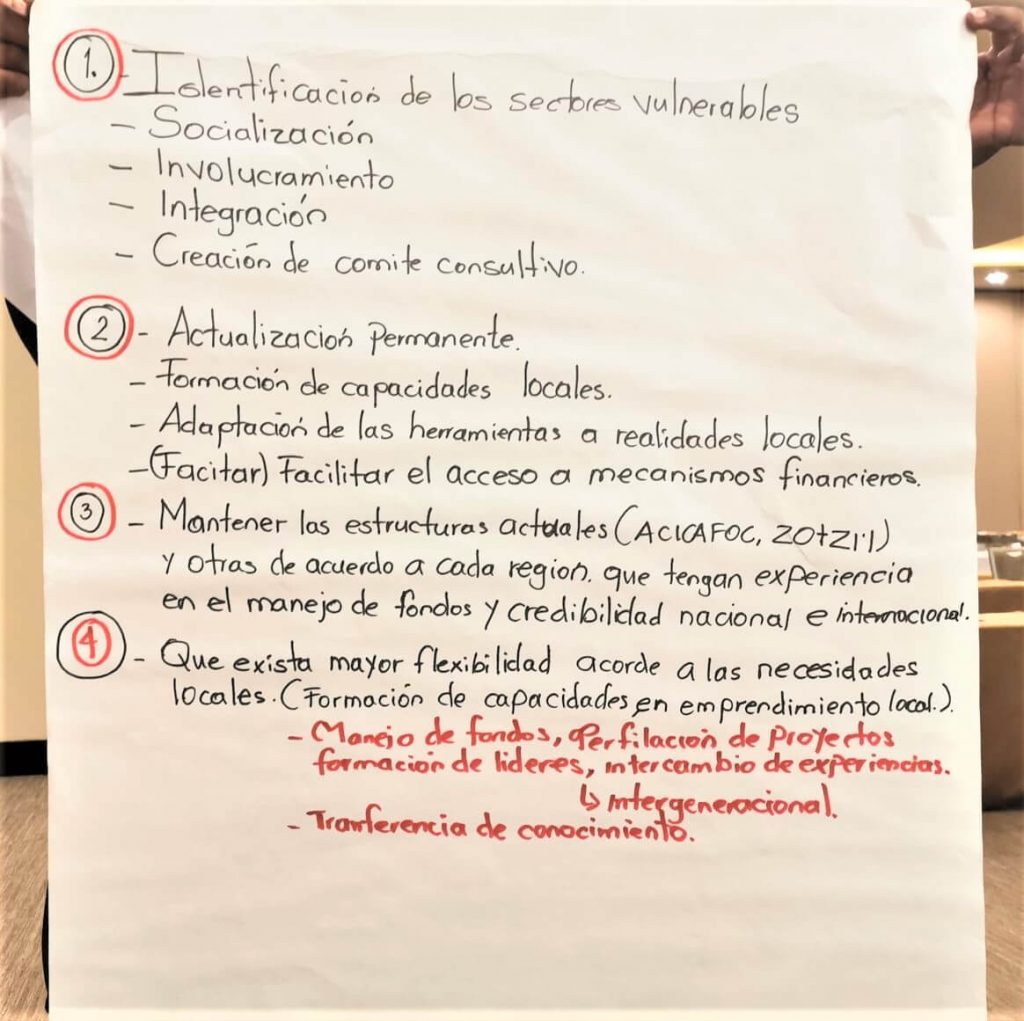 1.- Identificación de los sectores vulnerables
- Socialización
- Involucramiento
- Integración
- Creación de comite consultivo.
2 - Actualización Permanente.
- Formación de capacidades locales.
- Adaptación de las herramientas a realidades locales.
- (Facitar) Facilitar el acceso a mecanismos financieros.
3 - Mantener las estructuras actuales (ACICAFOC, ZOtZI'l)
y otras de acuerdo a cada region. que tengan experiencia
en el manejo de fondos y credibilidad nacional e internacional.
4 - Que exista mayor flexibilidad acorde a las necesidades
locales. (Formación de capacidades en emprendimiento local.).
- Manejo de fondos, Perfilación de Proyectos
formación de lideres, intercambio de experiencias.
↳ intergeneracional.
- Tranferencia de conocimiento.